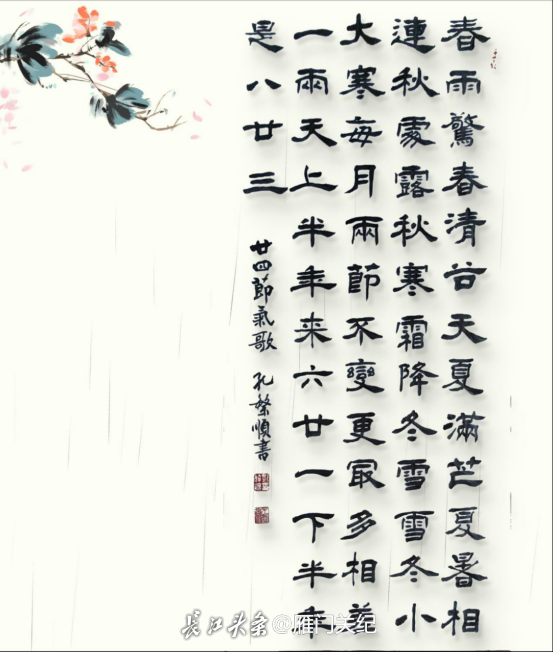 春雨驚春清谷天夏滿芒夏暑相
連秋處露秋寒霜降冬雪雪冬小
大寒每月兩節不變更最多相差
一兩天上半年来六廿一下半年
是八廿三
廿四節氣歌 孔繁順書
長江头条 @雁门关纪